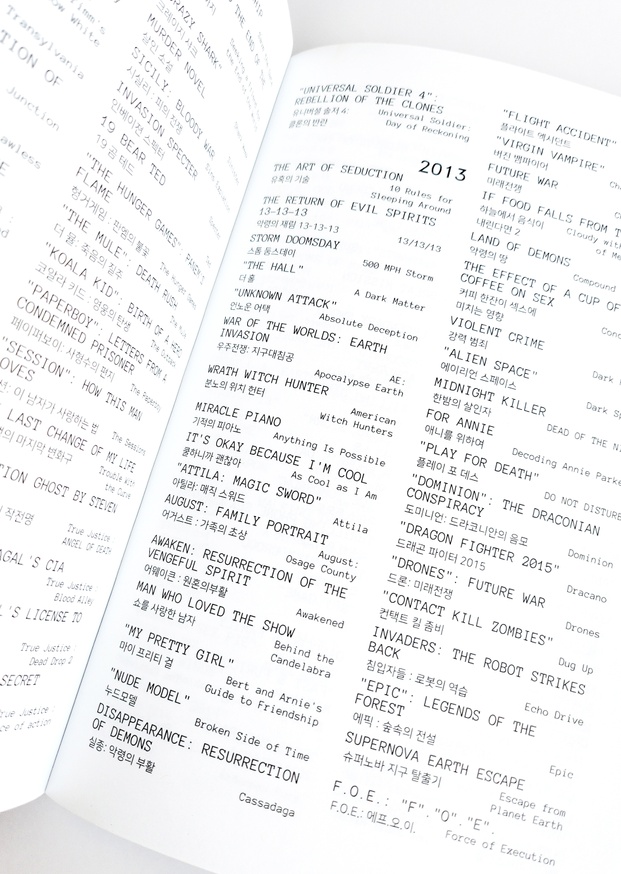 Transylvania
Junction
CRAZY SHARK"
크레이지 샤크
MURDER NOVEL
살인 소설
SICILY: BLOODY WAR
시칠리: 피의 전쟁
INVASION SPECTER
인베이젼 스펙터
19 BEAR TED
19 곰 테드
"THE HUNGER GAMES"
FLAME
헝거게임: 판엠의 불꽃
"THE MULE": DEATH RUSH
더 뮬: 죽음의 질주
"KOALA KID": BIRTH OF A HERO
코알라 키드: 영웅의 탄생
"PAPERBOY": LETTERS FROM A
CONDEMNED PRISONER
페이퍼보이: 사형수의 편지
The Paperboy
"SESSION": HOW THIS MAN
LOVES
션: 이 남자가 사랑하는 법
The Sessions
LAST CHANGE OF MY LIFE
마지막 변화구
Trouble with
the Curve
GHOST BY STEVEN
작전명
True Justice:
ANGEL OF DEATH
'S CIA
True Justice:
Blood Alley
'S LICENSE TO
True Justice:
Dead Drop 2
SECRET
True Justice:
of action
"UNIVERSAL SOLDIER 4":
REBELLION OF THE CLONES
유니버셜 솔저 4:
클론의 반란
Universal Soldier:
Day of Reckoning
2013
THE ART OF SEDUCTION
유혹의 기술
10 Rules for
Sleeping Around
THE RETURN OF EVIL SPIRITS
13-13-13
악령의 재림 13-13-13
13/13/13
STORM DOOMSDAY
스톰 둠스데이
500 MPH Storm
"THE HALL"
더 홀
A Dark Matter
"UNKNOWN ATTACK"
언노운 어택
Absolute Deception
WAR OF THE WORLDS: EARTH
INVASION
우주전쟁: 지구대침공
AE:
Apocalypse Earth
WRATH WITCH HUNTER
분노의 위치 헌터
American
Witch Hunters
MIRACLE PIANO
기적의 피아노
Anything Is Possible
IT'S OKAY BECAUSE I'M COOL
쿨하니까 괜찮아
As Cool as I Am
"ATTILA: MAGIC SWORD"
아틸라: 매직 스워드
Attila
AUGUST: FAMILY PORTRAIT
어거스트 : 가족의 초상
August:
Osage County
AWAKEN: RESURRECTION OF THE
VENGEFUL SPIRIT
어웨이큰 : 원혼의부활
Awakened
MAN WHO LOVED THE SHOW
쇼를 사랑한 남자
Behind the
Candelabra
"MY PRETTY GIRL"
마이 프리티 걸
Bert and Arnie's
Guide to Friendship
"NUDE MODEL"
누드모델
Broken Side of Time
DISAPPEARANCE: RESURRECTION
OF DEMONS
실종: 악령의 부활
Cassadaga
"FLIGHT ACCIDENT"
플라이트 엑시던트
"VIRGIN VAMPIRE"
버진 뱀파이어
FUTURE WAR
미래전쟁
IF FOOD FALLS FROM T
하늘에서 음식이
내린다면 2
Cloudy with
of Me
LAND OF DEMONS
악령의 땅
Compound
THE EFFECT OF A CUP OF
COFFEE ON SEX
커피 한잔이 섹스에
미치는 영향
VIOLENT CRIME
강력 범죄
"ALIEN SPACE"
에이리언 스페이스
Dark
MIDNIGHT KILLER
한밤의 살인자
Dark
FOR ANNIE
애니를 위하여
DEAD OF THE NI
Decoding Annie Parke
"PLAY FOR DEATH"
플레이 포 데스
DO NOT DISTURB
"DOMINION": THE DRACONIAN
CONSPIRACY
도미니언: 드라코니안의 음모
Dominion
"DRAGON FIGHTER 2015"
드래곤 파이터 2015
Dracano
"DRONES": FUTURE WAR
드론: 미래전쟁
Drones
"CONTACT KILL ZOMBIES"
컨택트 킬 좀비
Dug Up
INVADERS: THE ROBOT STRIKES
BACK
침입자들 : 로봇의 역습
Echo Drive
"EPIC": LEGENDS OF THE
FOREST
에픽 : 숲속의 전설
Epic
SUPERNOVA EARTH ESCAPE
슈퍼노바 지구 탈출기
Escape from
Planet Earth
F.O.E.: "F"."O"."E".
F.O.E.: 에프.오.이.
Force of Execution